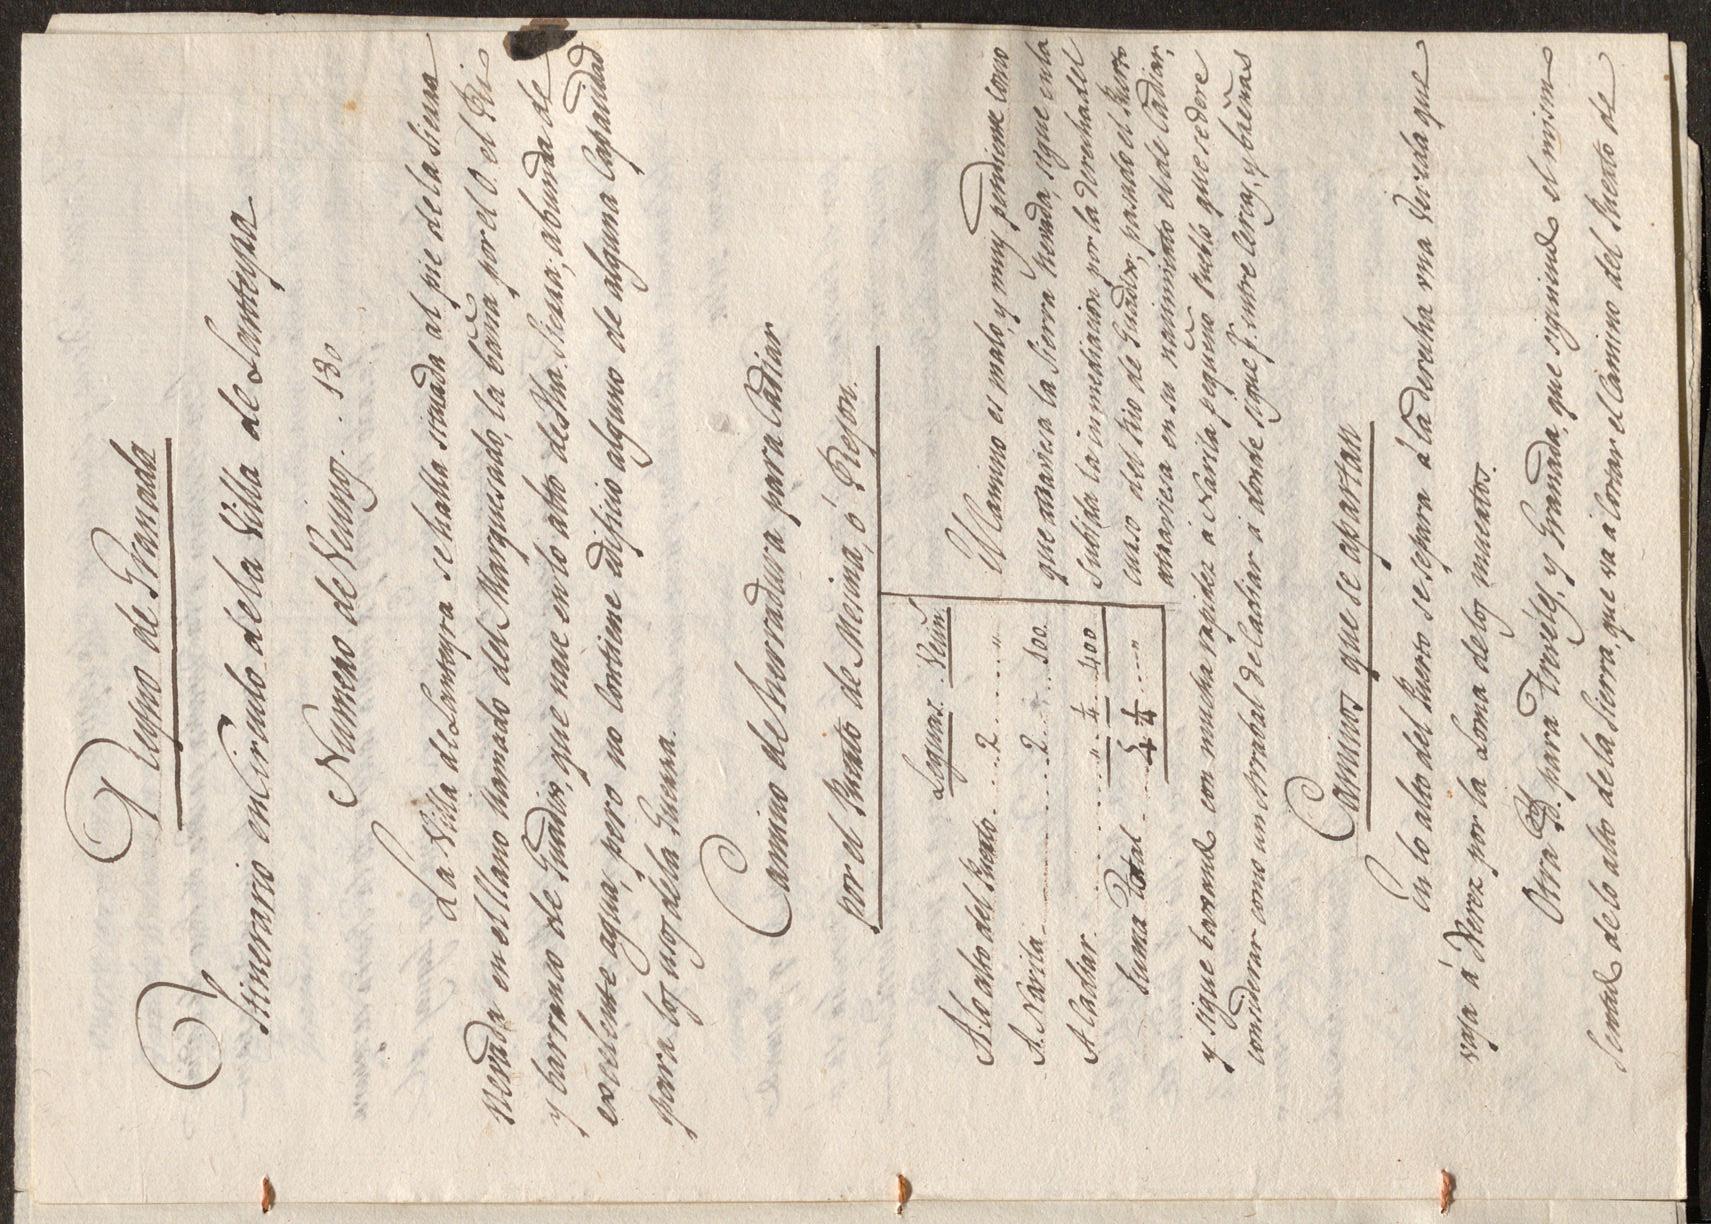 Reyno de Granada
Itinerario en Circulo de la Villa de Lanteyra
Numero de Vecinos . . 130
La Villa de Lanteyra se halla situada al pie de la Sierra
Nevada en el llano llamado del Marquesado, la baña por el O. el Rio
y barranco de Guadix, que nace en lo alto de dha. Sierra; abunda de
excelente agua, pero no contiene edificio alguno de alguna Capacidad
para los usos de la Guerra.
Camino de herradura para Cadiar
por el Puerto de Mecina, ó Rejon.
Leguas. Vecin.s
A lo alto del Puerto . . . . 2 . . . . . "
A Narila . . . . . . . . . . 2 . . . . 500.
A Cadiar . . . . . . . . . . " 1/4 . . 400
Suma Total . . . . 4 1/4 . . . "
El camino es malo, y muy pendiente como
que atraviesa la Sierra Nevada, sigue en la
subida la inmediacion por la derecha del
curso del Rio de Guadix, pasado el Puerto
atraviesa en su nacimiento el de Cadiar,
y sigue baxando con mucha rapidez á Narila pequeño Pueblo que se deve
considerar como un Arrabal de Cadiar á donde sigue entre Cercas, y breñas
Caminos que se apartan
En lo alto del Puerto se separa á la derecha una Vereda que
vaja á Xerez por la Loma de los muertos.
Otra para Trevélez, y Granada, que siguiendo el mismo
de lo alto de la Sierra, que va á cortar el Camino del Puerto de